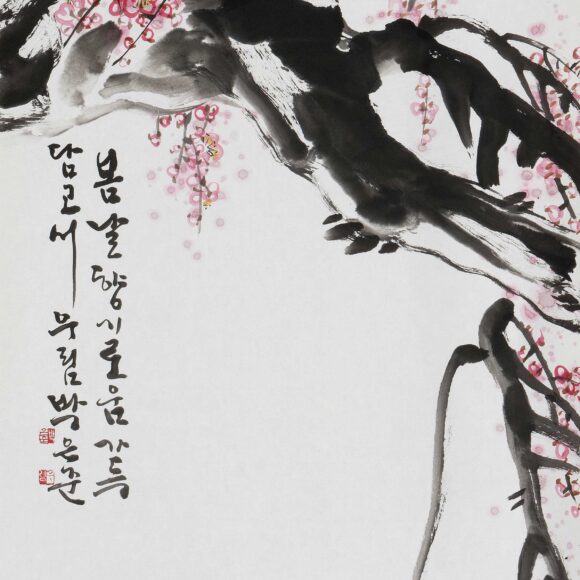 봄날 향기로움 가득
담고서 무림 박은준